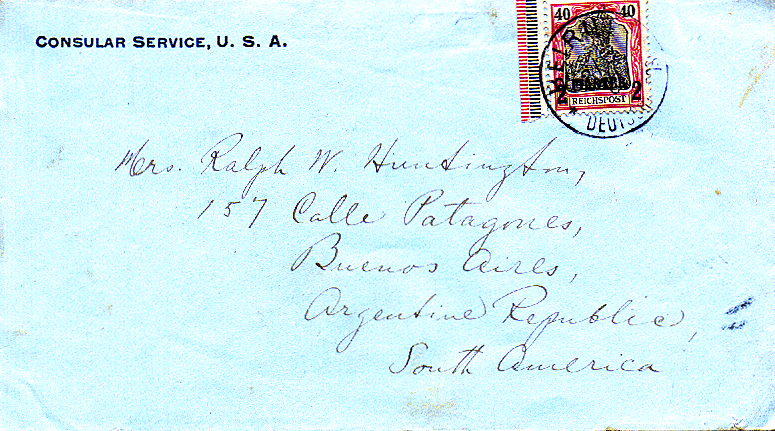 CONSULAR SERVICE, U. S. A.
40 40
2 2
REICHSPOST
BEIRUT
DEUTSCHE
Mrs. Ralph W. Huntington,
157 Calle Patagones,
Buenos Aires,
Argentine Republic,
South America